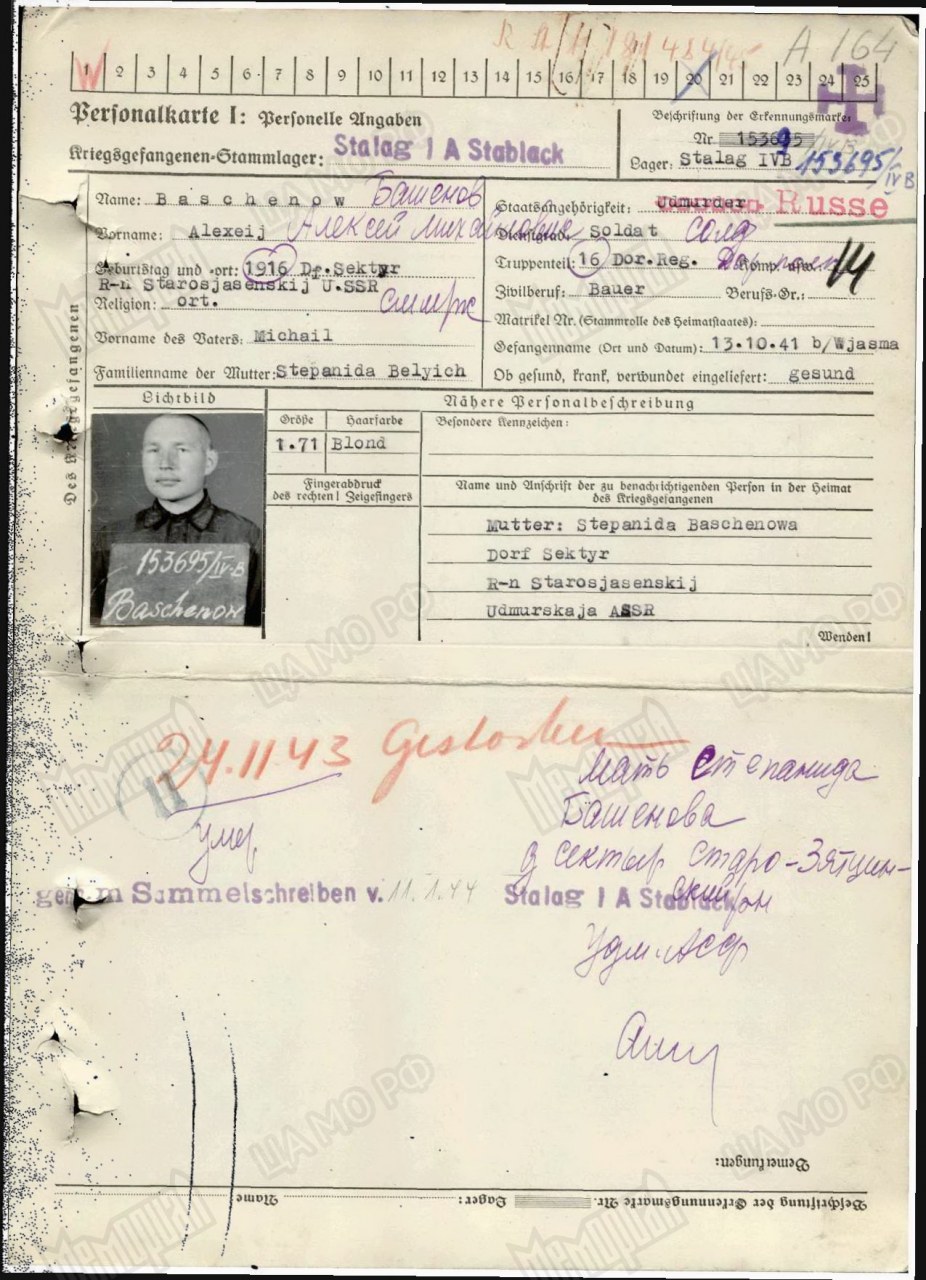 A 164
W 1 2 3 4 5 6 7 8 9 10 11 12 13 14 15 16 17 18 19 20 21 22 23 24 25
Personalkarte I: Personelle Angaben
Kriegsgefangenen-Stammlager: Stalag I A Stablack
Beschriftung der Erkennungsmarke
Nr. 153695
Lager: Stalag IVB 153695/IVB
Des Kriegsgefangenen
Name: Baschenow Башенов
Vorname: Alexeij Алексей Михайлович
Geburtstag und -ort: 1916 Df.Sektyr
R-n Starosjasenskij U.SSR
Religion: ort.
Vorname des Vaters: Michail
Familienname der Mutter: Stepanida Belyich
Staatsangehörigkeit: Udmurder Russe
Dienstgrad: Soldat солд
Truppenteil: 16 Dor.Reg. Komp. usw.: 14
Zivilberuf: Bauer Berufs-Gr.:
Matrikel Nr. (Stammrolle des Heimatstaates):
Gefangenname (Ort und Datum): 13.10.41 b/Wjasma
Ob gesund, krank, verwundet eingeliefert: gesund
Lichtbild
Nähere Personalbeschreibung
Größe Haarfarbe Besondere Kennzeichen:
1.71 Blond
Fingerabdruck
des rechten! Zeigefingers
Name und Anschrift der zu benachrichtigenden Person in der Heimat
des Kriegsgefangenen
Mutter: Stepanida Baschenowa
Dorf Sektyr
R-n Starosjasenskij
Udmurskaja ASSR
Wenden!
153695/IV-B
Baschenow
24.11.43 Gestorben
11
умер
Мать Степанида
Башенова
д сектыр старо-Зятцин-
ский рн
Удм.АССР
gem m Sammelschreiben v. 11.1.44 Stalag I A Stablack
Bemerkungen:
Beschriftung der Erkennungsmarke Nr. Lager: Name
ЦАМО РФ